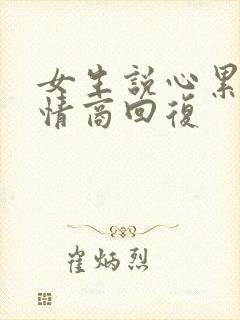 女生説心累
情商回復
崔炳烈